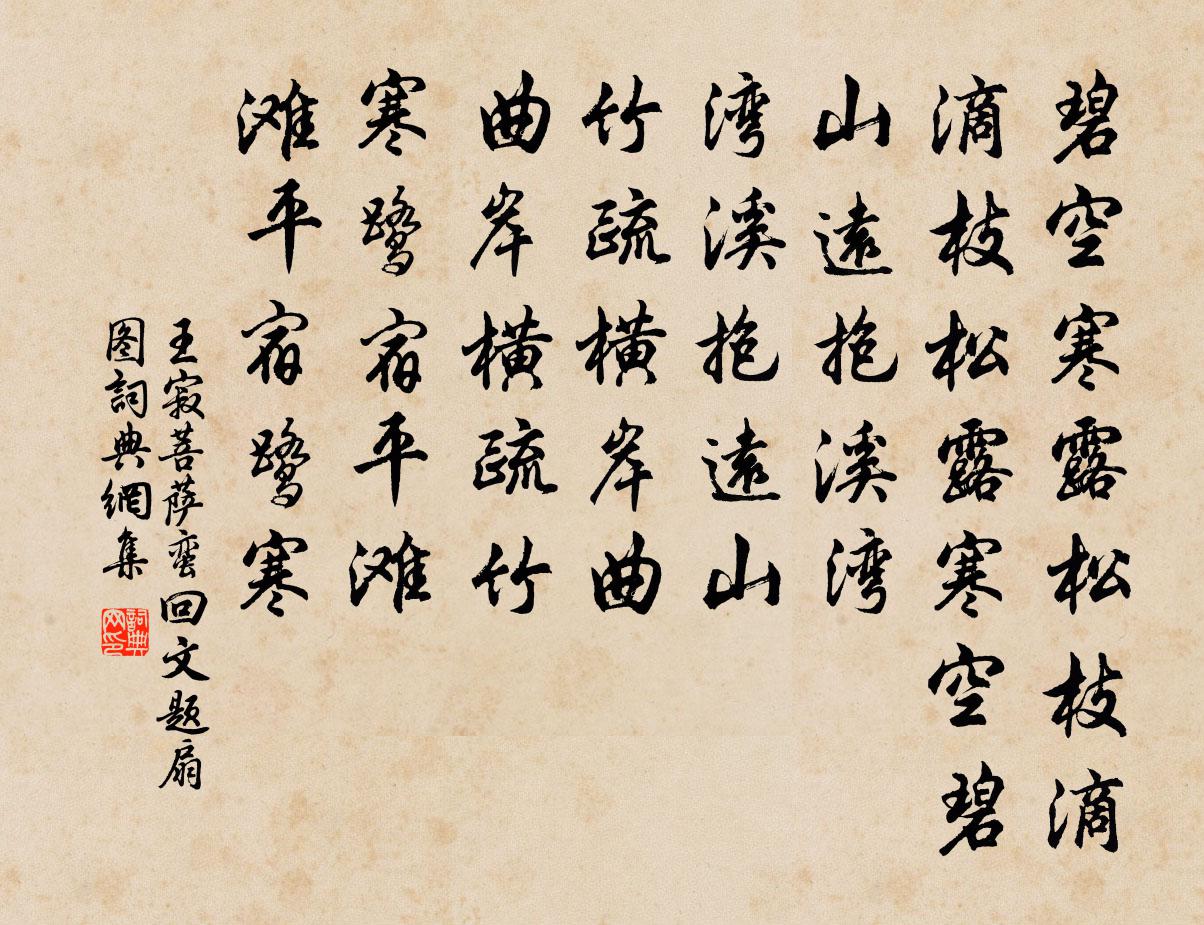 碧空寒露松枝滴
滴枝松露寒空碧
山遠抱溪湾
湾溪抱遠山
竹疏横岸曲
曲岸横疏竹
寒鹭宿平滩
滩平宿鹭寒
王寂菩萨蛮回文题扇
图詞典網集
詞典网印